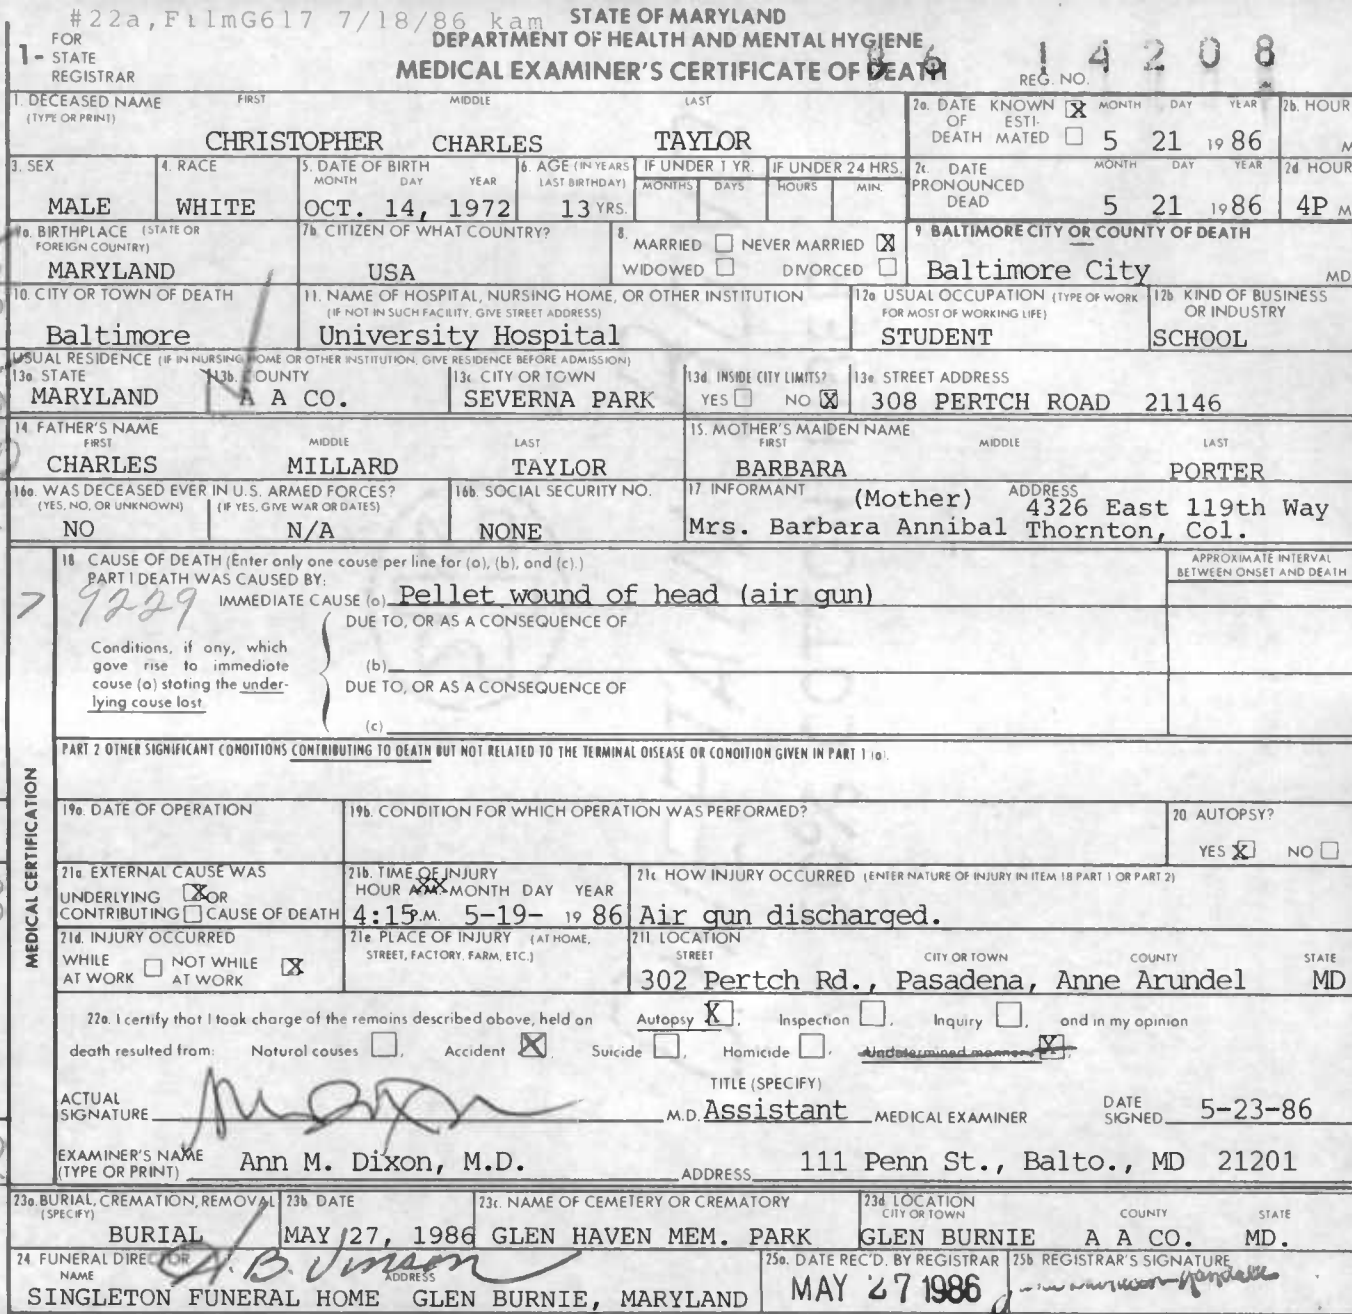 #22a, FilmG617 7/18/86 kam
STATE OF MARYLAND
DEPARTMENT OF HEALTH AND MENTAL HYGIENE
MEDICAL EXAMINER'S CERTIFICATE OF DEATH
1- FOR STATE REGISTRAR
86 14208
REG. NO.
1. DECEASED NAME (TYPE OR PRINT) FIRST MIDDLE LAST
CHRISTOPHER CHARLES TAYLOR
2a. DATE OF DEATH KNOWN X ESTIMATED MONTH DAY YEAR
5 21 1986
2b. HOUR
M
3. SEX
MALE
4. RACE
WHITE
5. DATE OF BIRTH MONTH DAY YEAR
OCT. 14, 1972
6. AGE (IN YEARS LAST BIRTHDAY)
13 YRS.
IF UNDER 1 YR. MONTHS DAYS
IF UNDER 24 HRS. HOURS MIN.
2c. DATE PRONOUNCED DEAD MONTH DAY YEAR
5 21 1986
2d HOUR
4P M
7a. BIRTHPLACE (STATE OR FOREIGN COUNTRY)
MARYLAND
7b. CITIZEN OF WHAT COUNTRY?
USA
8. MARRIED NEVER MARRIED X
WIDOWED DIVORCED
9 BALTIMORE CITY OR COUNTY OF DEATH
Baltimore City MD
10. CITY OR TOWN OF DEATH
Baltimore
11. NAME OF HOSPITAL, NURSING HOME, OR OTHER INSTITUTION
(IF NOT IN SUCH FACILITY, GIVE STREET ADDRESS)
University Hospital
12a USUAL OCCUPATION (TYPE OF WORK FOR MOST OF WORKING LIFE)
STUDENT
12b. KIND OF BUSINESS OR INDUSTRY
SCHOOL
USUAL RESIDENCE (IF IN NURSING HOME OR OTHER INSTITUTION, GIVE RESIDENCE BEFORE ADMISSION)
13a STATE
MARYLAND
13b. COUNTY
A A CO.
13c CITY OR TOWN
SEVERNA PARK
13d INSIDE CITY LIMITS?
YES NO X
13e STREET ADDRESS
308 PERTCH ROAD 21146
14. FATHER'S NAME FIRST MIDDLE LAST
CHARLES MILLARD TAYLOR
15. MOTHER'S MAIDEN NAME FIRST MIDDLE LAST
BARBARA PORTER
16a. WAS DECEASED EVER IN U.S. ARMED FORCES?
(YES, NO, OR UNKNOWN) (IF YES, GIVE WAR OR DATES)
NO N/A
16b. SOCIAL SECURITY NO.
NONE
17 INFORMANT (Mother) ADDRESS
4326 East 119th Way
Mrs. Barbara Annibal Thornton, Col.
18 CAUSE OF DEATH (Enter only one cause per line for (a), (b), and (c).)
APPROXIMATE INTERVAL BETWEEN ONSET AND DEATH
PART I DEATH WAS CAUSED BY:
9229
IMMEDIATE CAUSE (a) Pellet wound of head (air gun)
DUE TO, OR AS A CONSEQUENCE OF
Conditions, if any, which gave rise to immediate cause (a) stating the underlying cause last
(b)
DUE TO, OR AS A CONSEQUENCE OF
(c)
PART 2 OTHER SIGNIFICANT CONDITIONS CONTRIBUTING TO DEATH BUT NOT RELATED TO THE TERMINAL DISEASE OR CONDITION GIVEN IN PART 1 (a).
MEDICAL CERTIFICATION
19a. DATE OF OPERATION
19b. CONDITION FOR WHICH OPERATION WAS PERFORMED?
20 AUTOPSY?
YES X NO
21a. EXTERNAL CAUSE WAS
UNDERLYING X OR
CONTRIBUTING CAUSE OF DEATH
21b. TIME OF INJURY
HOUR A.M. MONTH DAY YEAR
4:15 P.M. 5-19- 1986
21c HOW INJURY OCCURRED (ENTER NATURE OF INJURY IN ITEM 18 PART 1 OR PART 2)
Air gun discharged.
21d. INJURY OCCURRED
WHILE AT WORK NOT WHILE AT WORK X
21e PLACE OF INJURY (AT HOME, STREET, FACTORY, FARM, ETC.)
21f. LOCATION
STREET CITY OR TOWN COUNTY STATE
302 Pertch Rd., Pasadena, Anne Arundel MD
22a. I certify that I took charge of the remains described above, held an Autopsy X, Inspection, Inquiry, and in my opinion
death resulted from: Natural causes, Accident X, Suicide, Homicide, Undetermined manner X.
ACTUAL SIGNATURE
TITLE (SPECIFY)
M.D. Assistant MEDICAL EXAMINER
DATE SIGNED 5-23-86
EXAMINER'S NAME (TYPE OR PRINT) Ann M. Dixon, M.D.
ADDRESS 111 Penn St., Balto., MD 21201
23a. BURIAL, CREMATION, REMOVAL (SPECIFY)
BURIAL
23b DATE
MAY 27, 1986
23c. NAME OF CEMETERY OR CREMATORY
GLEN HAVEN MEM. PARK
23d LOCATION
CITY OR TOWN COUNTY STATE
GLEN BURNIE A A CO. MD.
24 FUNERAL DIRECTOR
A. B. Vinson
NAME ADDRESS
SINGLETON FUNERAL HOME GLEN BURNIE, MARYLAND
25a. DATE REC'D. BY REGISTRAR
MAY 27 1986
25b REGISTRAR'S SIGNATURE